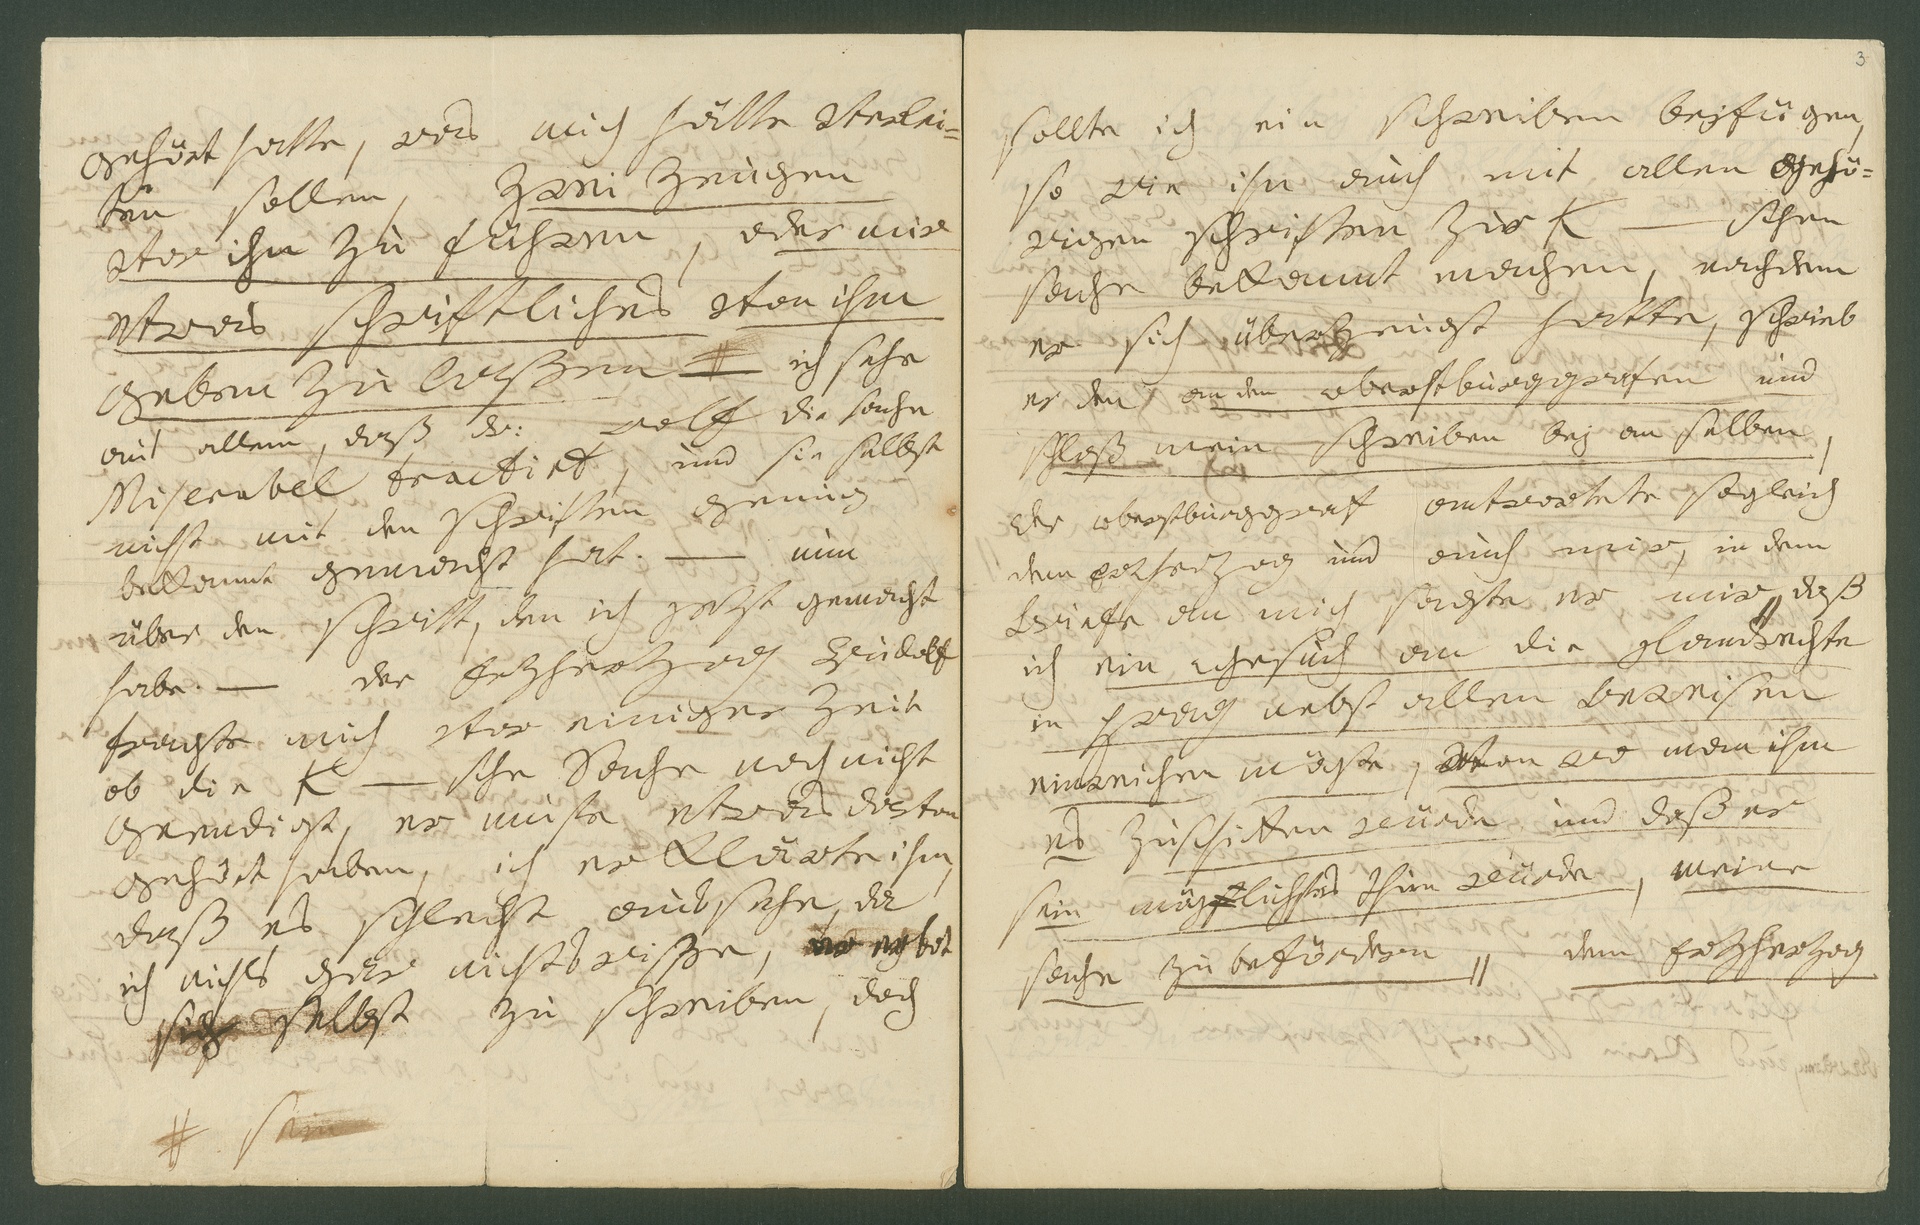 gehört hatte, was mich hätte verlei-
ten sollen, zwei Zeugen
vor ihm zu führen, oder mir
etwas schriftliches von ihm
geben zu laßen # ich sehe
aus allem, daß dr: wolf die sache
Miserabel tractirt, und sie selbst
nicht mit den schriften genung
bekannt gemacht hat. — nun
über den schritt, den ich jetzt gemacht
habe. — der Erzherzog Rudolf
fragte mich vor einiger Zeit
ob die K — sche Sache noch nicht
geendigt, er müste etwas davon
gehört haben, ich erklärte ihm,
daß es schlecht aussehe, da
ich nichts gar nichts wiße, er erbot
sich selbst zu schreiben, doch
# sein
3
sollte ich ein schreiben beyfügen,
so wie ihn auch mit allen gehö-
rigen schriften zur K — schen
sache bekannt machen, nachdem
er sich überzeugt hatte, schrieb
er den an den oberstburggrafen und
schloß mein schreiben bey an selben,
der oberstburggraf antwortete sogleich
dem erzherzog und auch mir, in dem
Briefe an mich sagte er mir, daß
ich ein gesuch an die "landrechte
in Prag nebst allen beweisen
einreichen möchte, von wo man ihm
es zuschikken würde und daß er
sein möglichstes thun würde, meine
sache zu befördern" dem Erzherzog